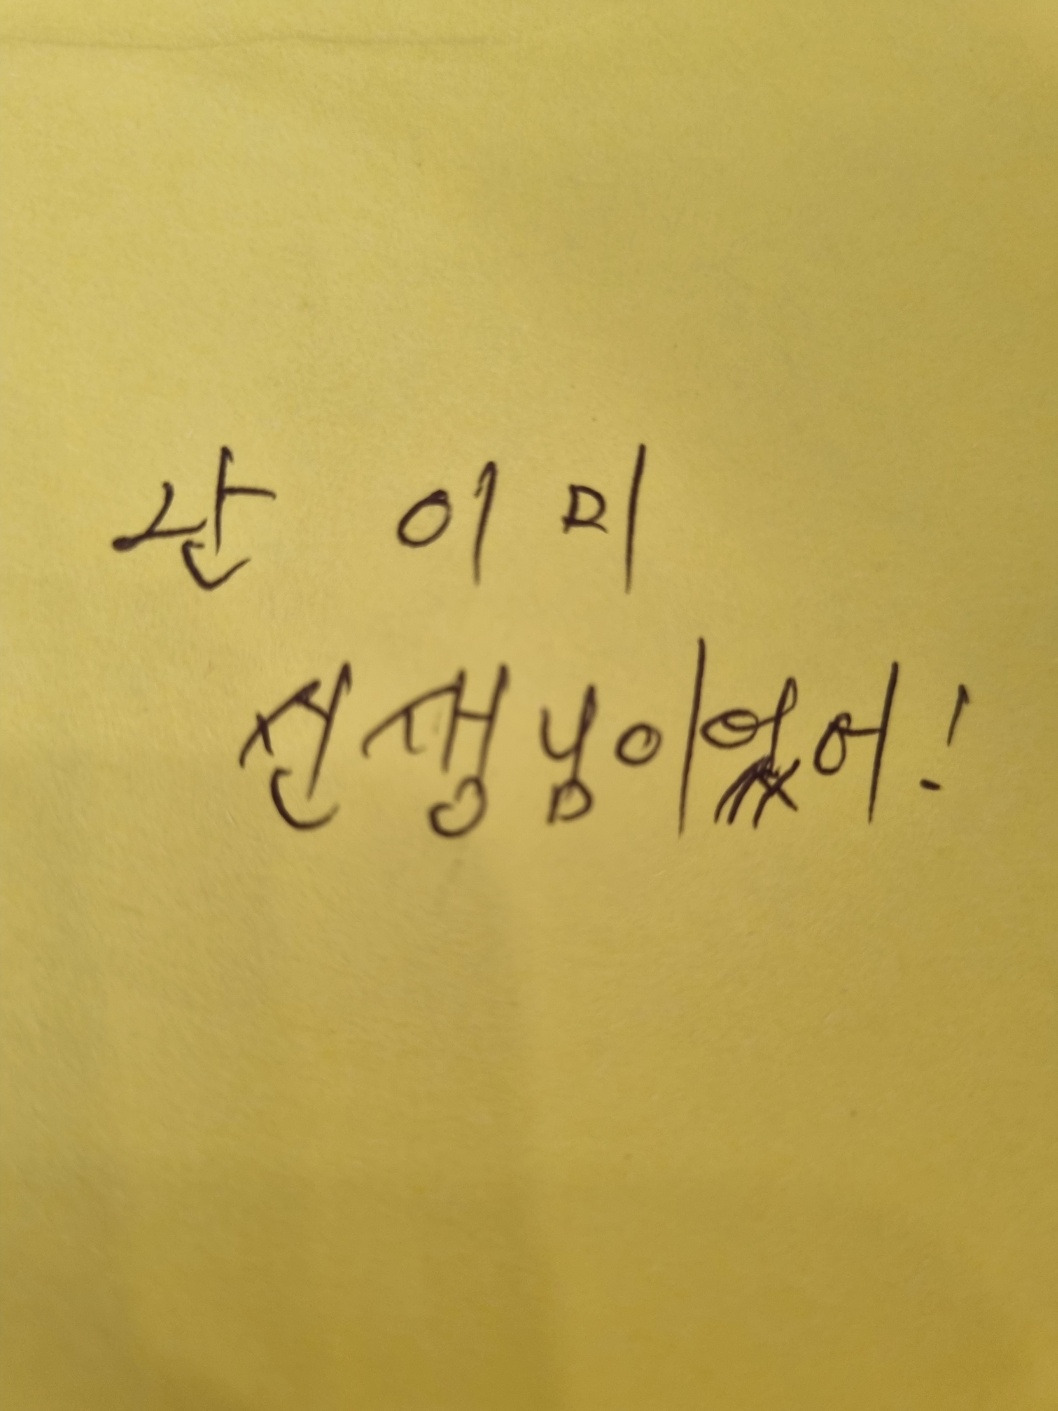 난 이미
선생님이었어!